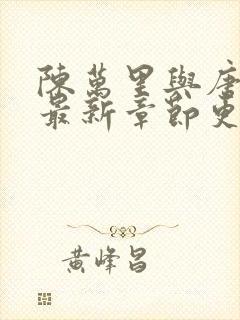 陳萬里與唐
最新章節更
黃峰昌